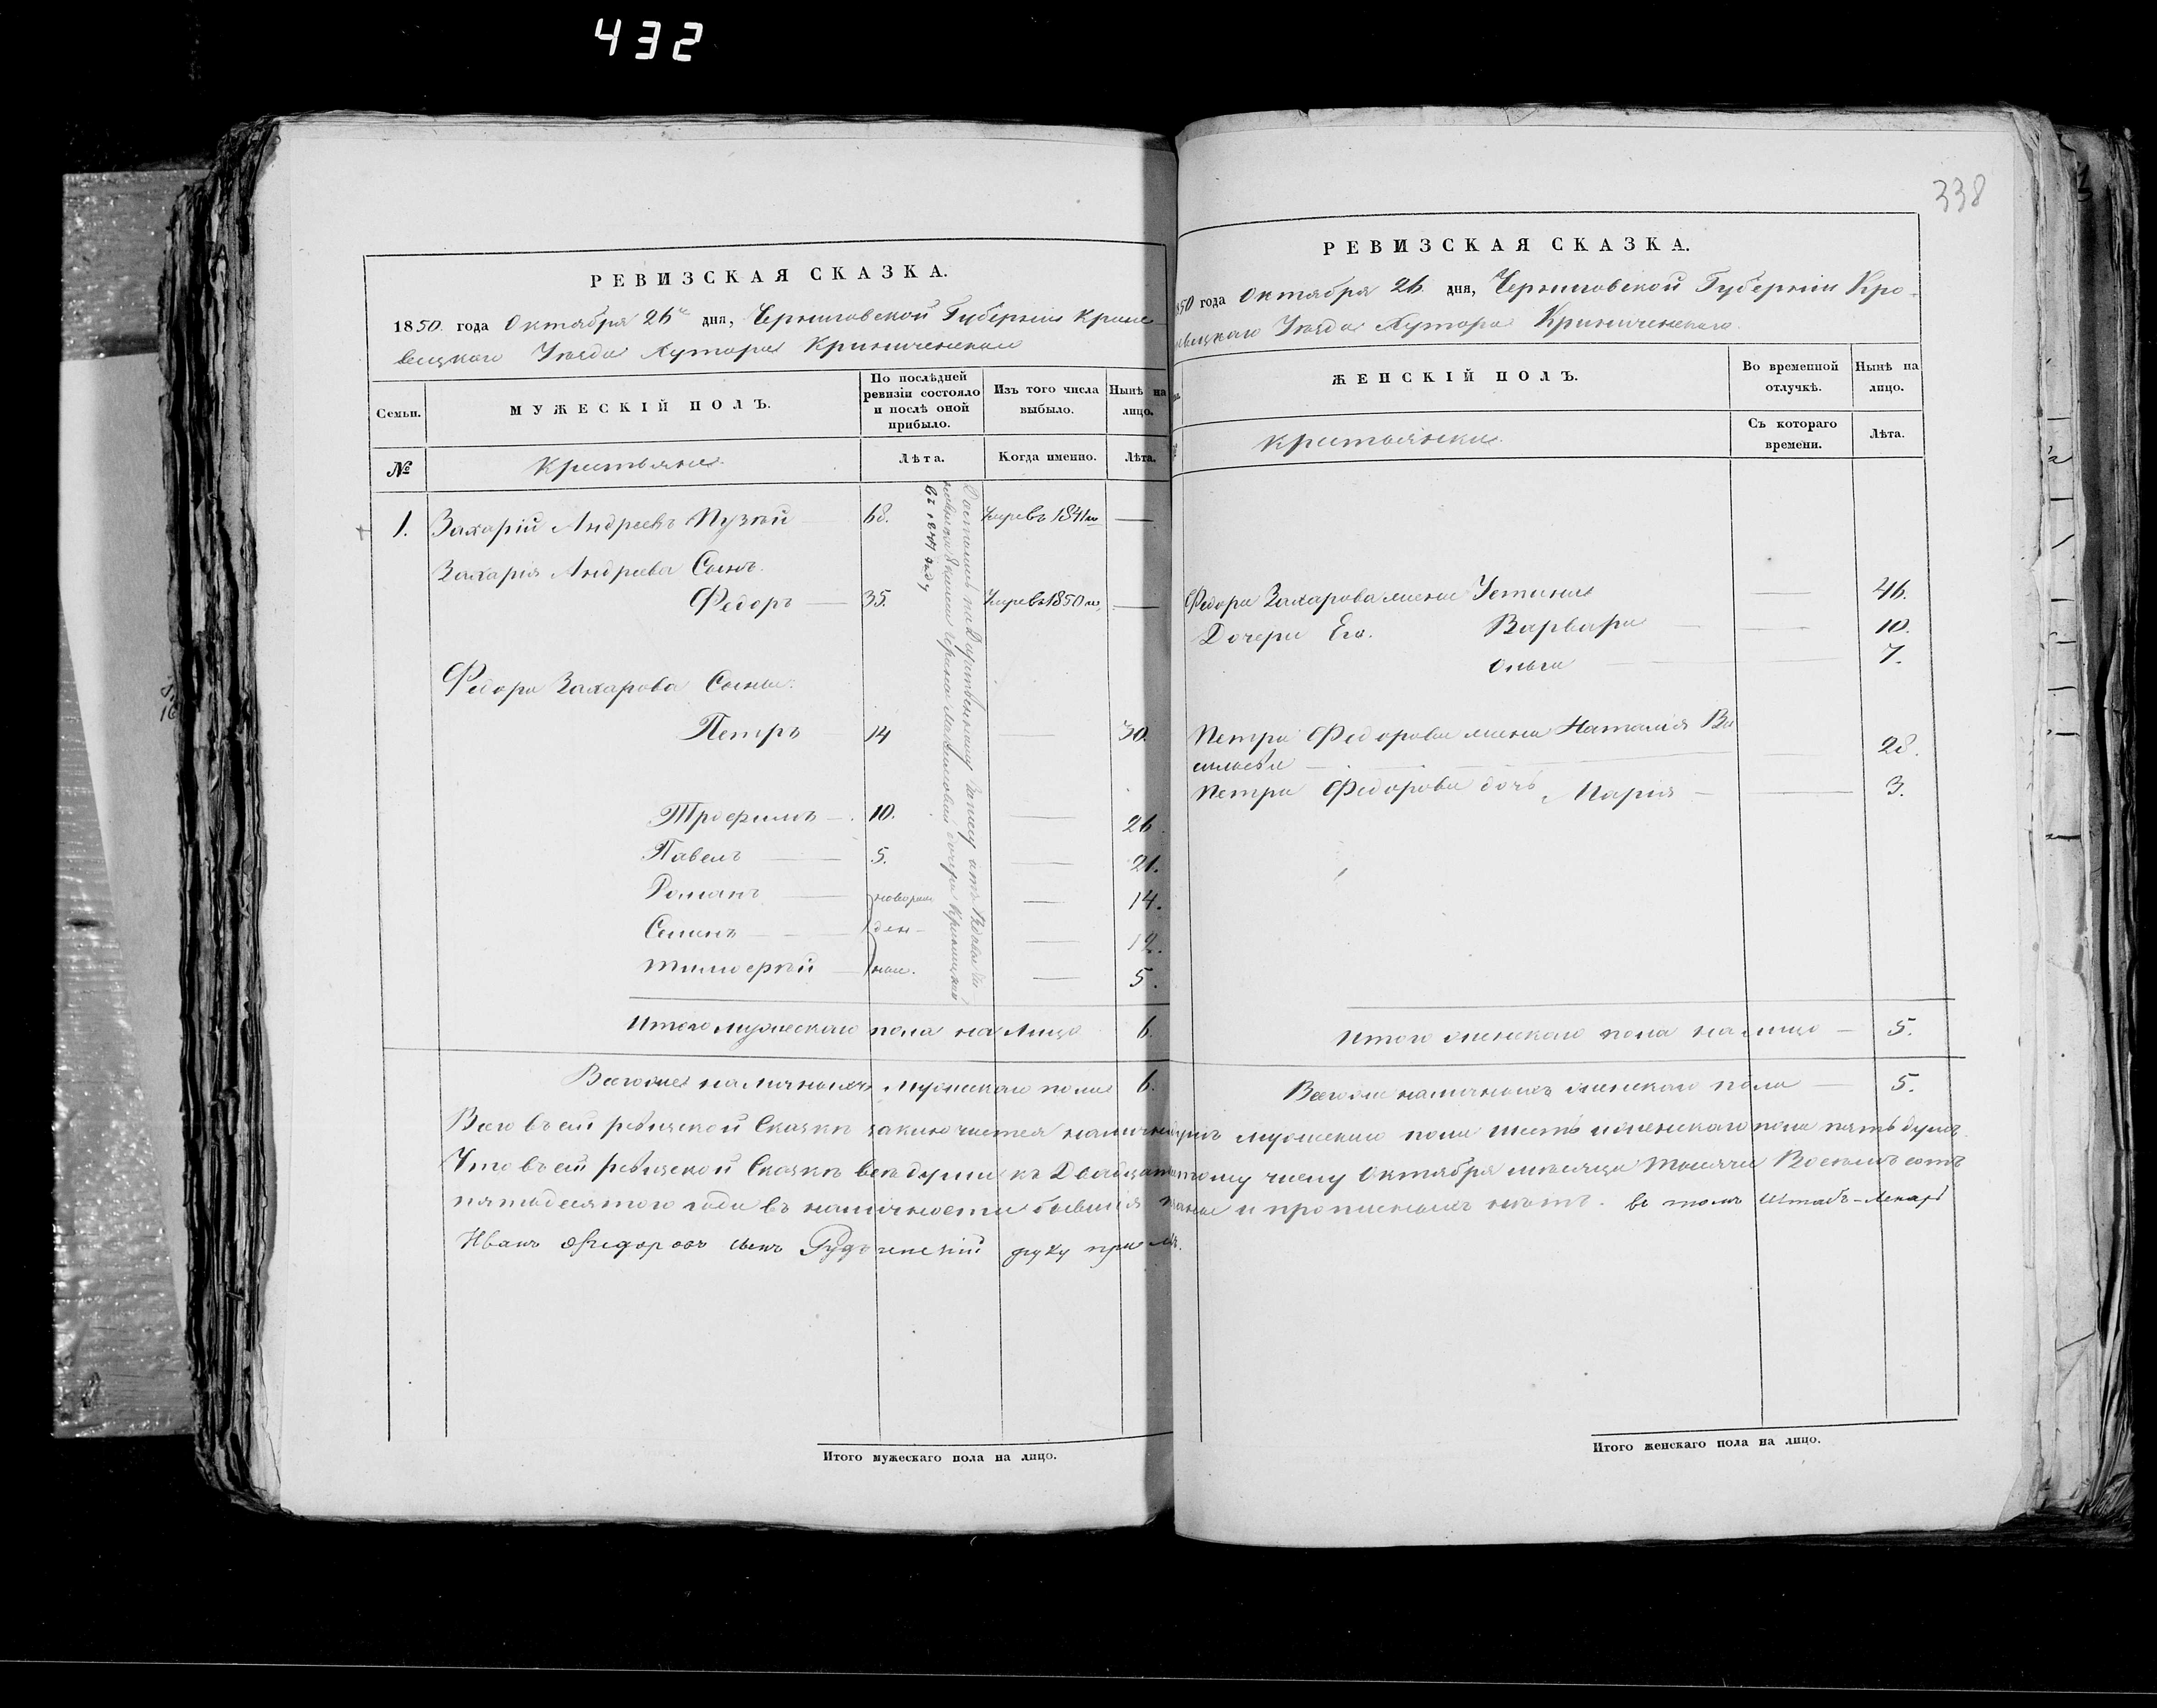 432
РЕВИЗСКАЯ СКАЗКА.
1850 года Октября 26 дня, Черниговской Губерніи Кроле
вецкаго Уезда Хутора Криниченскаго
Семьи.
МУЖЕСКІЙ ПОЛЪ.
По послѣдней ревизіи состояло и послѣ оной прибыло.
Изъ того числа выбыло.
Нынѣ на лицо.
№
Крестьяне
Лѣта.
Когда именно.
Лѣта.
1. Захарій Андреевъ Пузый 68. Умре въ 1841 го —
Захарія Андреева Сынъ.
Федоръ — 35. Умре въ 1850 го —
Федора Захарова Сыны.
Петръ 14 — 30.
Трофимъ — 10. — 26.
Павелъ — 5. — 21.
Романъ — новорож — 14.
Семенъ — ден — 12.
Тимофей — ные. — 5.
Достались по Дарственному
дочери
въ году
Итого мужескаго пола на Лицо 6.
Всего же наличныхъ Мужескаго пола 6.
338
РЕВИЗСКАЯ СКАЗКА.
850 года Октября 26 дня, Черниговской Губерніи Кро-
левецкаго Уезда Хутора Криниченскаго
ЖЕНСКІЙ ПОЛЪ.
Во временной отлучкѣ.
Нынѣ на лицо.
Крестьянки
Съ котораго времени.
Лѣта.
Федора Захарова жена Устинья — 46.
Дочери Его. Варвара — 10.
Ольга — 7.
Петра Федорова жена Наталія Ва
сильева — 28.
Петра Федорова дочь Марія — 3.
Итого женскаго пола на лицо — 5.
Всего же наличныхъ женскаго пола — 5.
Всего въ сей ревизской Сказкѣ заключается наличныхъ мужескаго пола шесть и женскаго пола пять душъ.
Что въ сей ревизской Сказкѣ всѣ души къ Двадцать шестому числу Октября месяца Тысяча Восемь сотъ
пятьдесятого года въ наличности бывшія и прописныхъ нѣтъ. въ томъ Штабъ-Лекарь
Иванъ Федоровъ сынъ руку
Итого мужескаго пола на лицо.
Итого женскаго пола на лицо.